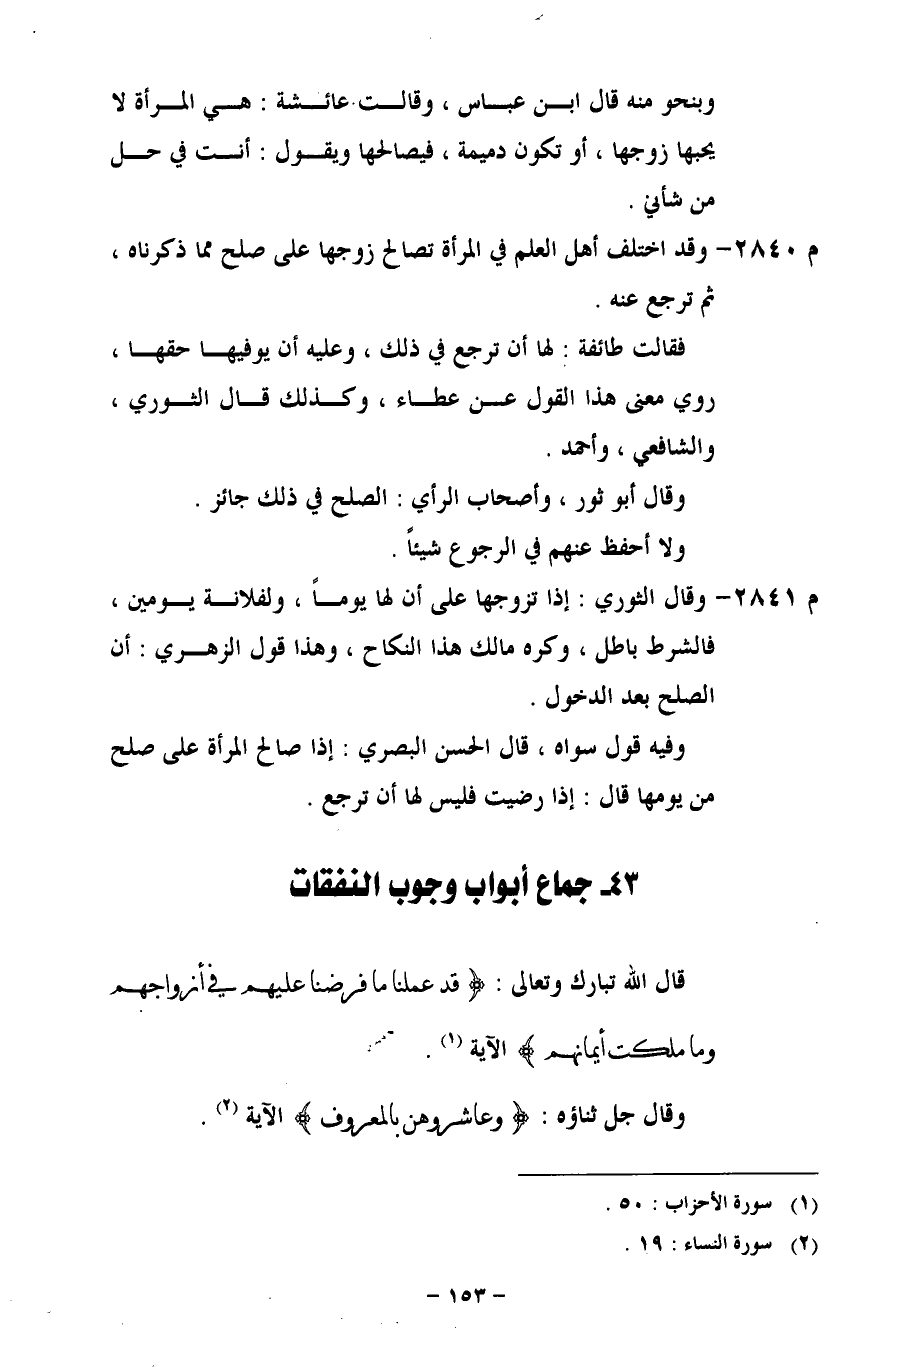 وبنحو منه قال ابن عباس ، وقالت عائشة : هي المرأة لا
يحبها زوجها ، أو تكون دميمة ، فيصالحها ويقول : أنت في حل
من شأني .
م ٢٨٤٠- وقد اختلف أهل العلم في المرأة تصالح زوجها على صلح مما ذكرناه ،
ثم ترجع عنه .
فقالت طائفة : لها أن ترجع في ذلك ، وعليه أن يوفيها حقها ،
روي معنى هذا القول عن عطاء ، وكذلك قال الثوري ،
والشافعي ، وأحمد .
وقال أبو ثور ، وأصحاب الرأي : الصلح في ذلك جائز .
ولا أحفظ عنهم في الرجوع شيئاً .
م ٢٨٤١- وقال الثوري : إذا تزوجها على أن لها يوماً ، ولفلانة يومين ،
فالشرط باطل ، وكره مالك هذا النكاح ، وهذا قول الزهري : أن
الصلح بعد الدخول .
وفيه قول سواه ، قال الحسن البصري : إذا صالح المرأة على صلح
من يومها قال : إذا رضيت فليس لها أن ترجع .
٤٣ـ جماع أبواب وجوب النفقات
قال الله تبارك وتعالى : ﴿ قد علمنا ما فرضنا عليهم في أزواجهم
وما ملكت أيمانهم ﴾ الآية (١) .
وقال جل ثناؤه : ﴿ وعاشروهن بالمعروف ﴾ الآية (٢) .
(١) سورة الأحزاب : ٥٠ .
(٢) سورة النساء : ١٩ .
- ١٥٣ -